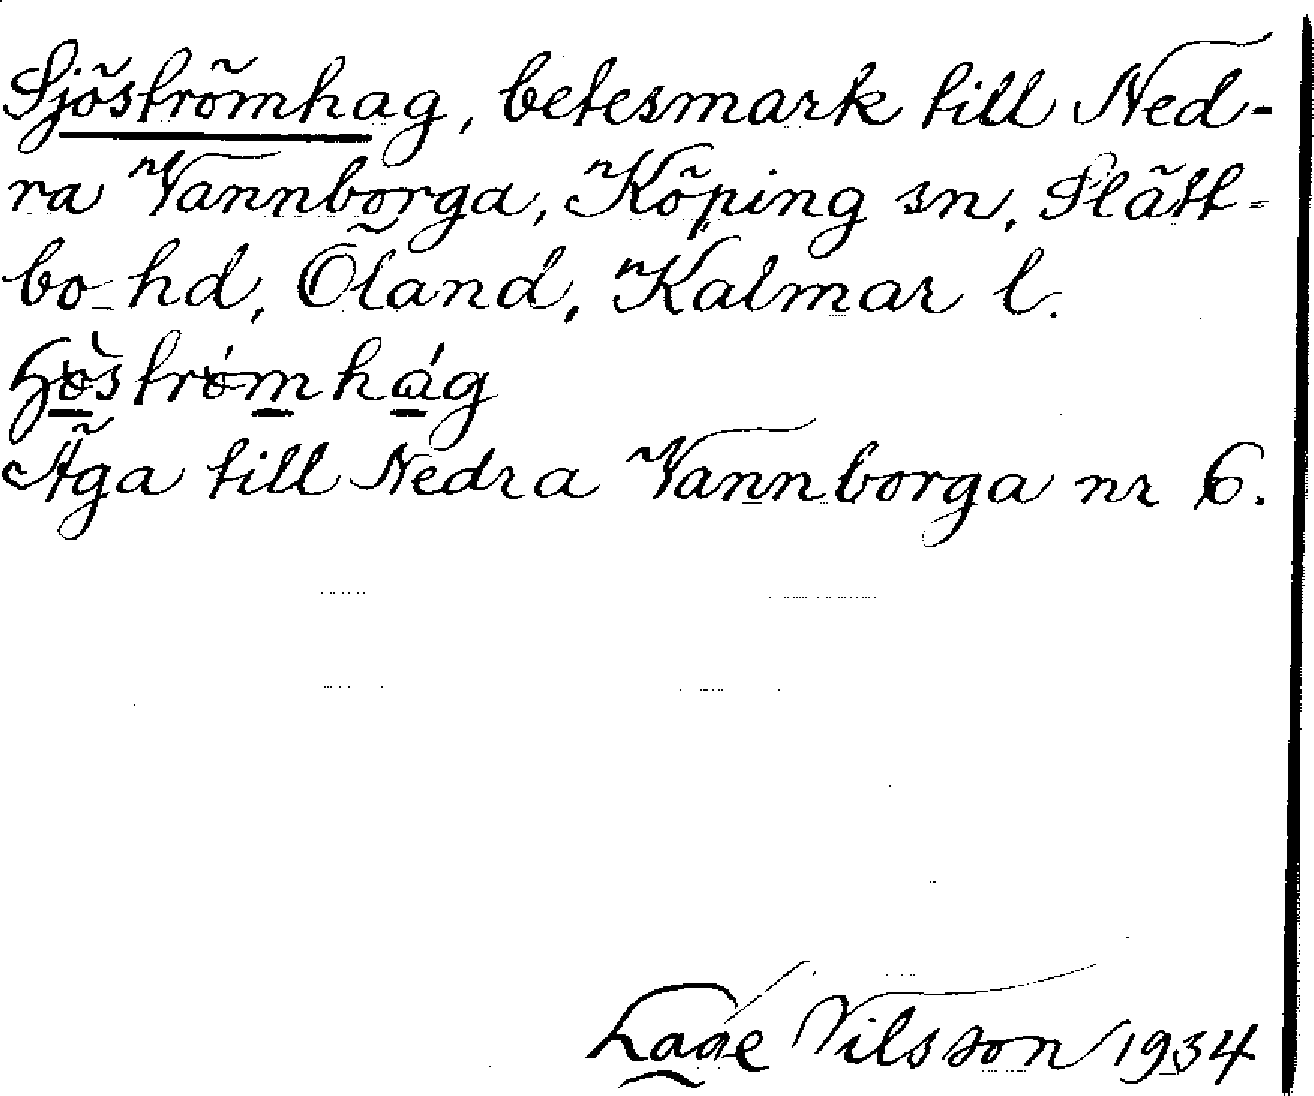 Sjöströmhag, betesmark till Ned-
ra Vannborga, Köping sn, Slätt-
bo hd, Öland, Kalmar l.
Äga till Nedra Vannborga nr 6.
Låge Nilsson 1934